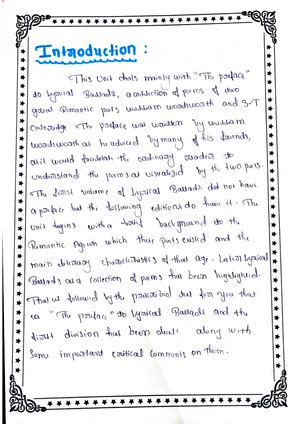 Introduction :
This Unit deals mainly with "The preface"
to Lyrical Ballads, a collection of poems of two
great Romantic poets william wordsworth and S-T
Coleridge The preface was written by william
wordsworth as he adviced by many of his friends,
as it would facilitate the ordinary readers to
understand the poems as visualized by the two poets.
The first volume of Lyrical Ballads did not have
a preface but the following editions do have it. The
unit begins with a brief background to the
Romantic Age in which these poets existed and the
main literary characteristics of that age. Later Lyrical
Ballads as a collection of poems has been highlighted.
That is followed by the prescribed text for you that
is "The preface" to Lyrical Ballads and the
first division has been dealt along with
Some important critical comments on them.